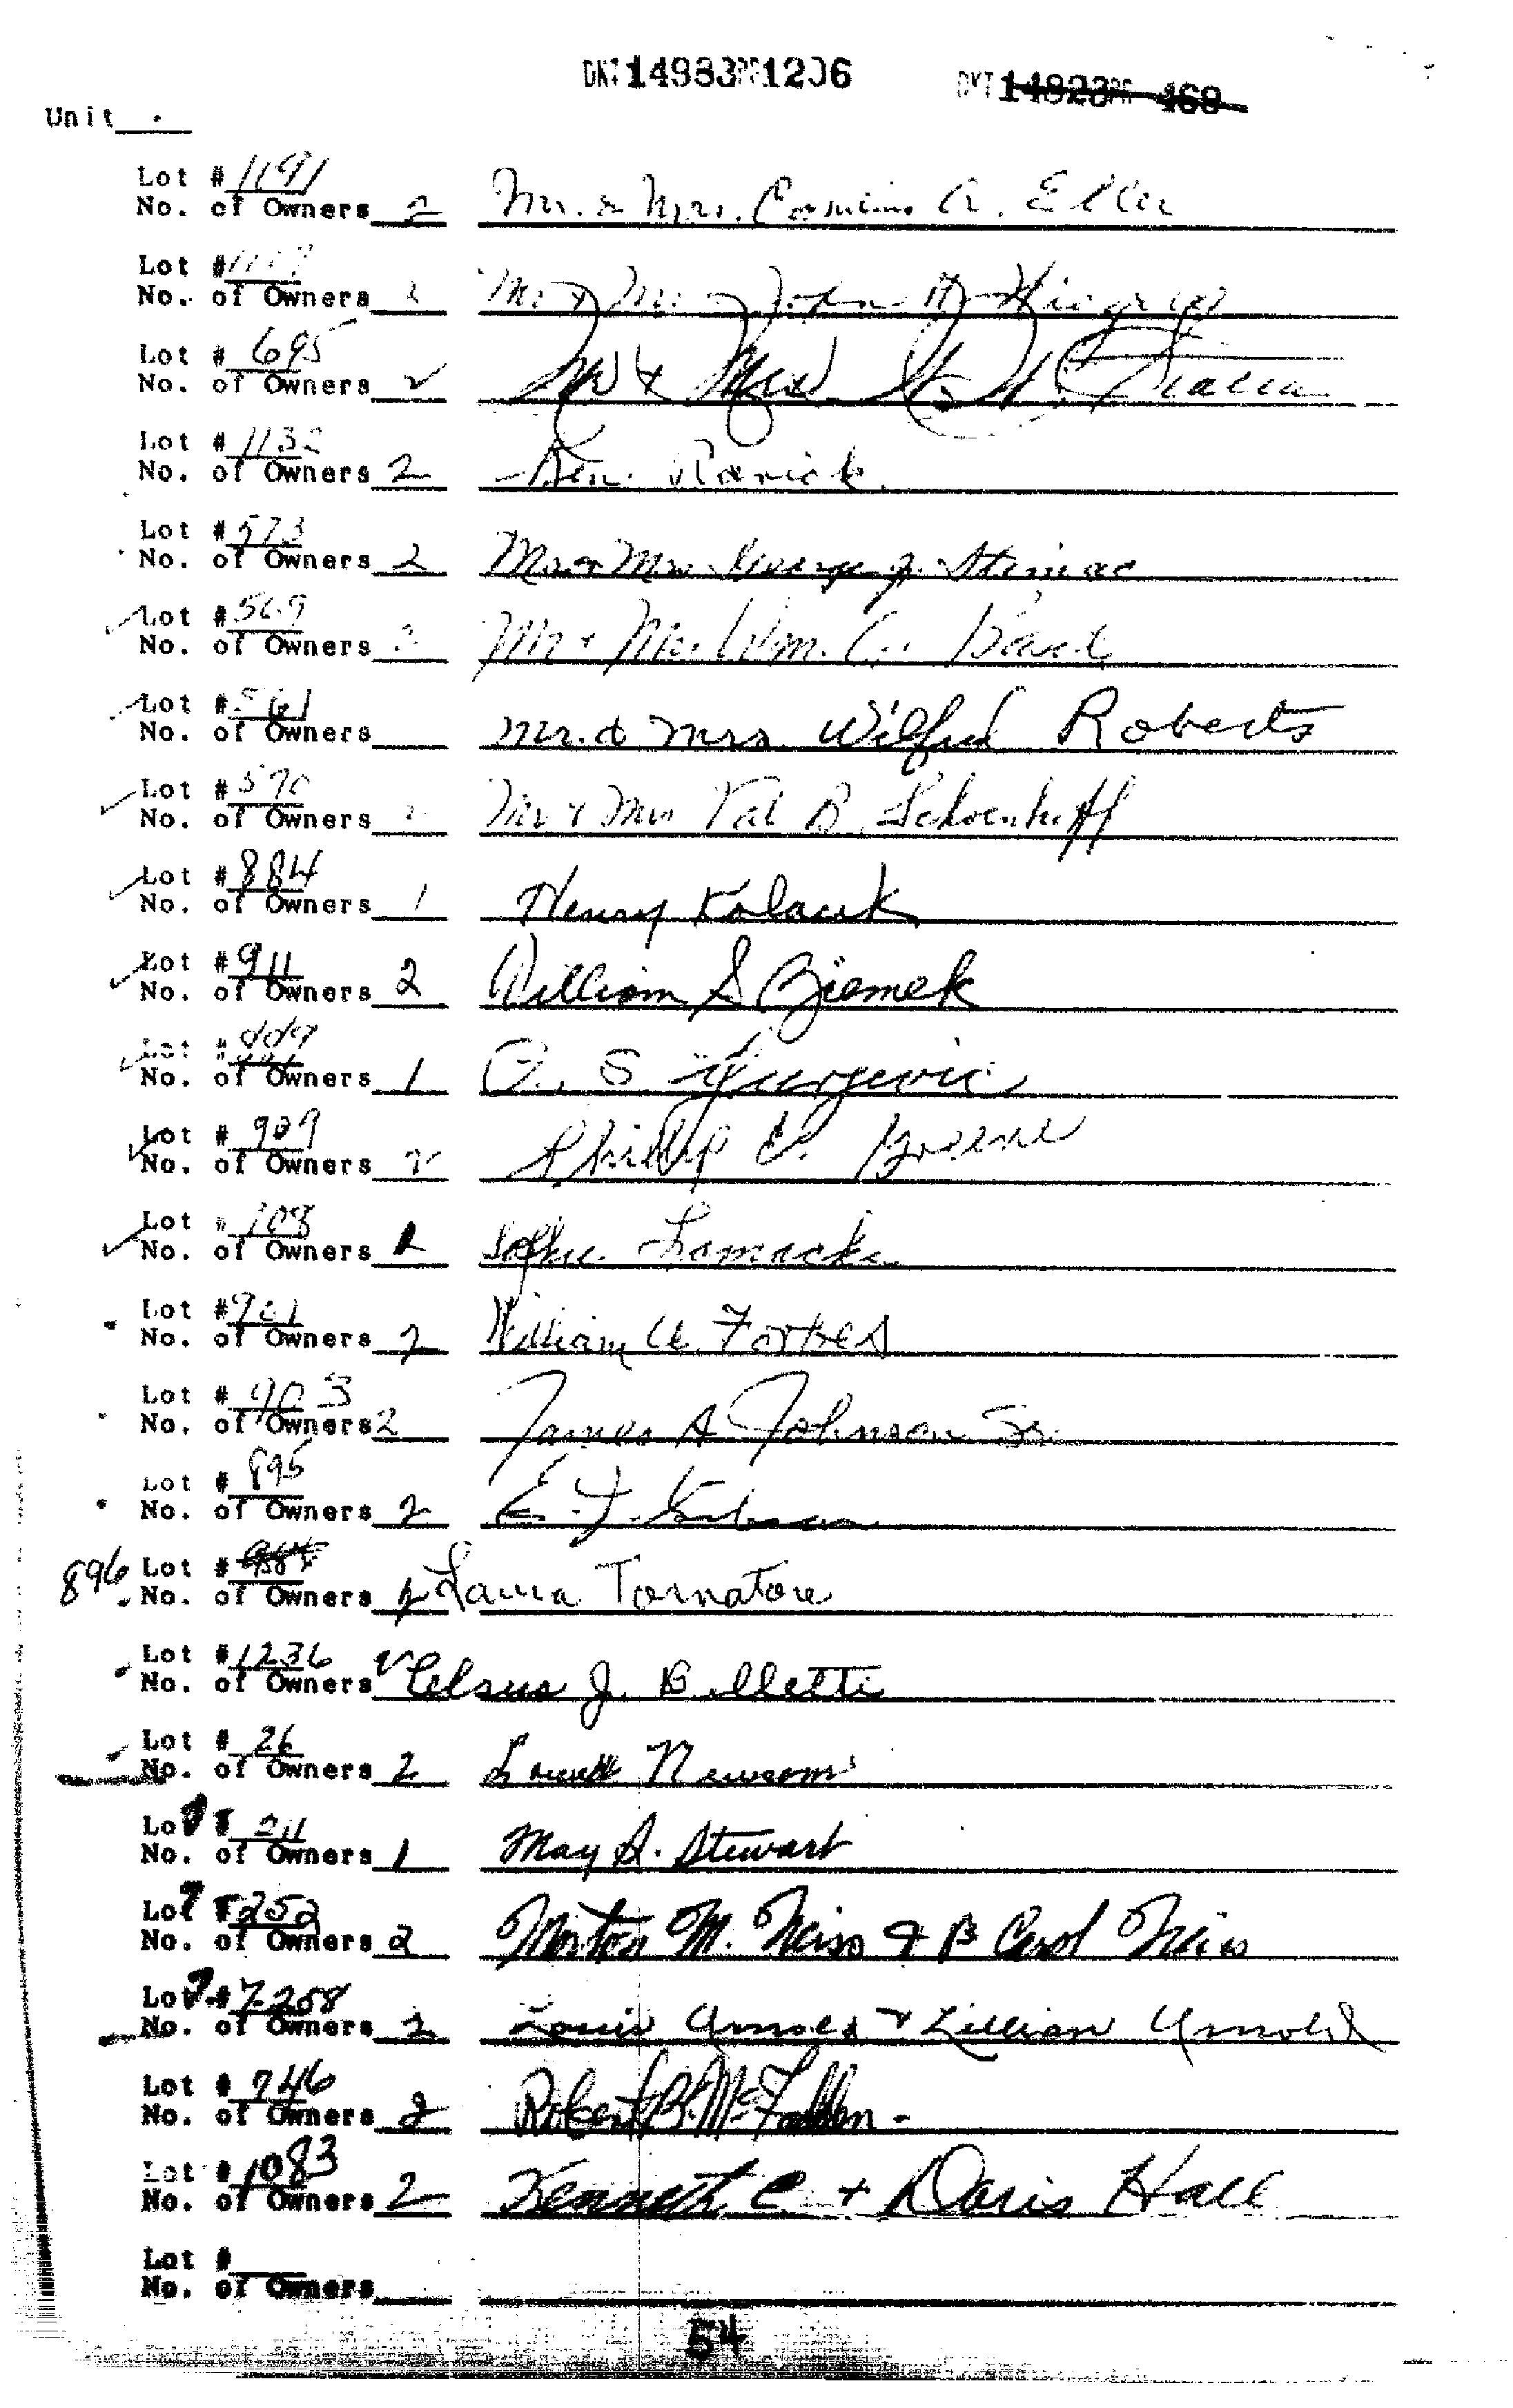 DKT 14983 PG 1206 DKT 14823 PG 468
Unit
Lot # 1191
No. of Owners 2 Mr. & Mrs. A. Eller
Lot #
No. of Owners 2 Mr & Mrs John
Lot # 695
No. of Owners 2 Mr & Mrs
Lot # 1132
No. of Owners 2 Ben Ranick
Lot # 573
No. of Owners 2 Mr & Mrs George J. Stimac
Lot # 569
No. of Owners 2 Mr & Mrs Wm. C.
Lot # 561
No. of Owners Mr. & Mrs. Wilfred Roberts
Lot # 570
No. of Owners 2 Mr & Mrs Val B. Schoenhoff
Lot # 884
No. of Owners 1 Henry Kolacik
Lot # 911
No. of Owners 2 William S Ziemek
Lot # 889
No. of Owners 1 S. Gurgevic
Lot # 909
No. of Owners 2 Phillip E. Greene
Lot # 108
No. of Owners Sophie Lamacki
Lot # 901
No. of Owners 2 William A. Forbes
Lot # 903
No. of Owners 2 James A Johnson Sr.
Lot # 895
No. of Owners 2 E. F. Gibson
896 Lot #
No. of Owners 2 Laura Tornatore
Lot # 1236
No. of Owners 2 Celsus J. Bellette
Lot # 26
No. of Owners 2 Lowell Newsom
Lot # 211
No. of Owners 1 May A. Stewart
Lot # 252
No. of Owners 2 Morton M. Weiss & B Carol Weiss
Lot # 7258
No. of Owners 2 Louis Arnold & Lillian Arnold
Lot # 746
No. of Owners 2 Robert B. McFadden
Lot # 1083
No. of Owners 2 Kenneth C + Doris Hall
Lot #
No. of Owners
54